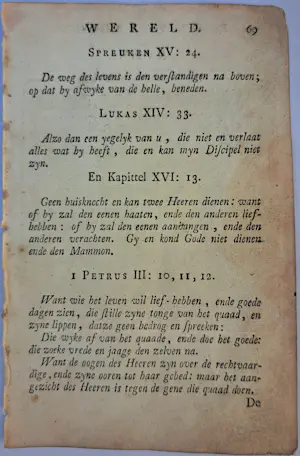 WERELD. 69
SPREUKEN XV: 24.
De weg des levens is den verſtandigen na boven;
op dat hy afwyke van de helle, beneden.
LUKAS XIV: 33.
Alzo dan een yegelyk van u, die niet en verlaat
alles wat hy heeft, die en kan myn Diſcipel niet
zyn.
En Kapittel XVI: 13.
Geen huisknecht en kan twee Heeren dienen: want
of hy zal den eenen haaten, ende den anderen lief-
hebben: of hy zal den eenen aanhangen, ende den
anderen verachten. Gy en kond Gode niet dienen
ende den Mammon.
1 PETRUS III: 10, 11, 12.
Want wie het leven wil lief-hebben, ende goede
dagen zien, die ſtille zyne tonge van het quaad, en
zyne lippen, datze geen bedrog en ſpreeken:
Die wyke af van het quaade, ende doe het goede:
die zoeke vrede en jaage den zelven na.
Want de oogen des Heeren zyn over de rechtvaar-
dige, ende zyne ooren tot haar gebed: maar het aan-
gezicht des Heeren is tegen de gene die quaad doen.
De